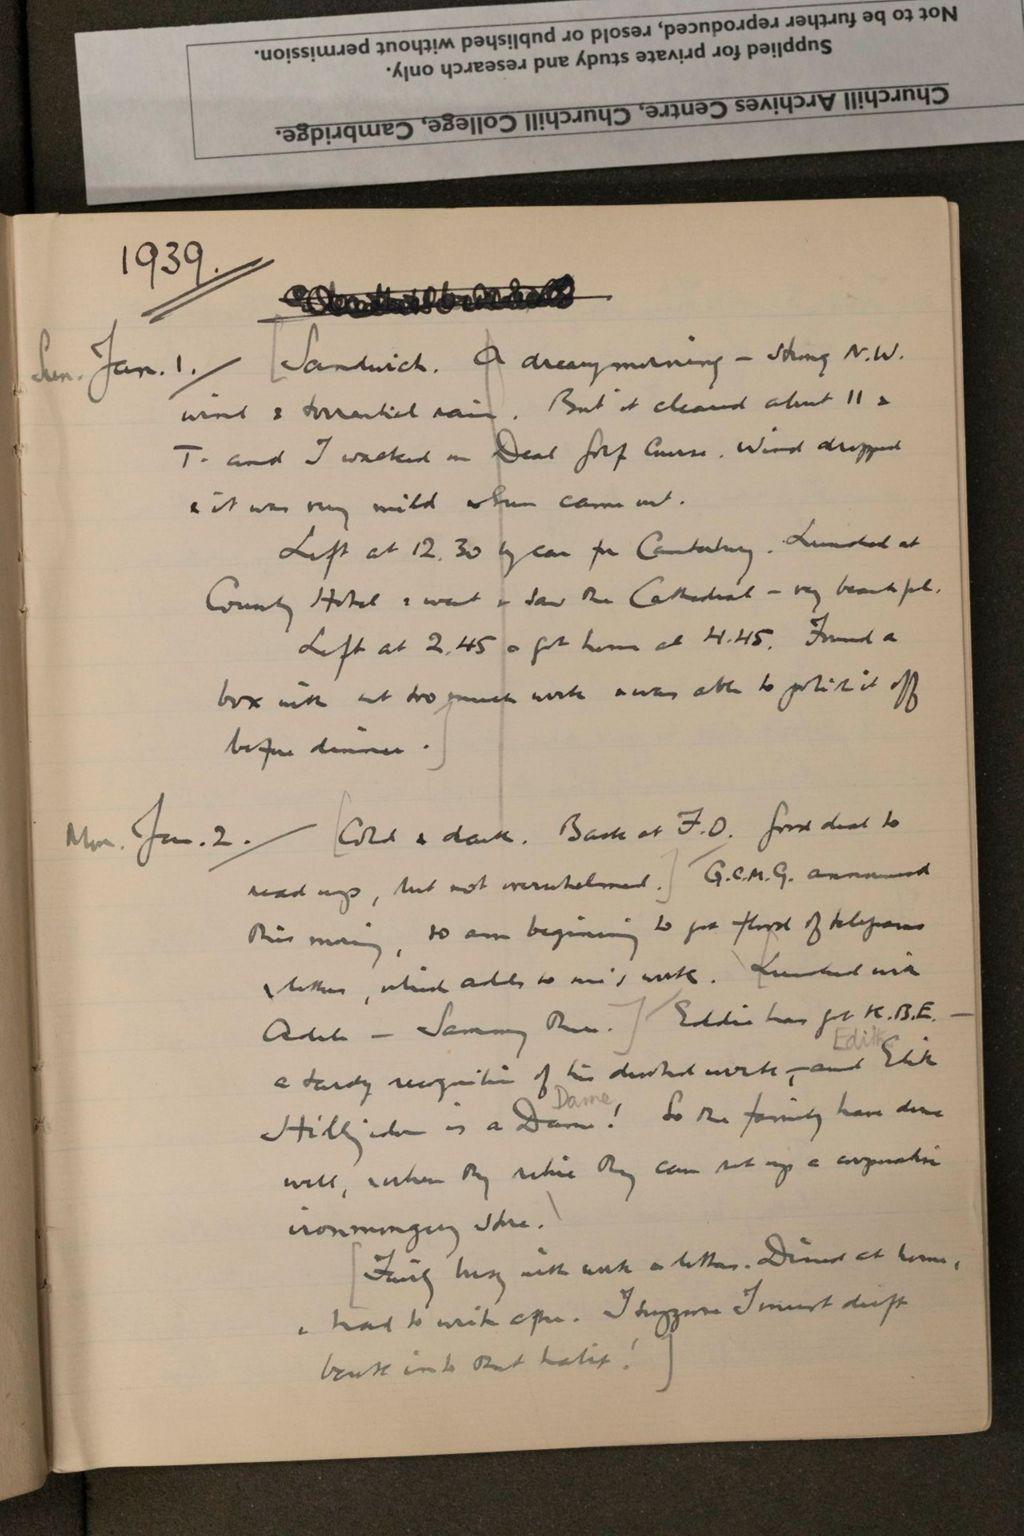 Churchill Archives Centre, Churchill College, Cambridge.
Supplied for private study and research only.
Not to be further reproduced, resold or published without permission.
1939.
Sun. Jan. 1. [Sandwich. A dreary morning – strong N.W.
wind & torrential rain. But it cleared about 11 &
T. and I walked on Deal Golf Course. Wind dropped
& it was very mild when came out.
Left at 12.30 by car for Canterbury. Lunched at
County Hotel & went & saw the Cathedral – very beautiful.
Left at 2.45 & got home at 4.45. Found a
box with not too much work & was able to polish it off
before dinner.]
Mon. Jan. 2. [Cold & dark. Back at F.O. Good deal to
read up, but not overwhelmed.] G.C.M.G. announced
this morning, so am beginning to get flood of telegrams
& letters, which adds to one's work. [Lunched with
Adela – Sammy there.] Eddie has got K.B.E. –
Edith
a tardy recognition of his devoted work, – and Edith
Dame
is a Dame! So the family have done
well, & when they retire they can set up a cooperative
ironmongery store.
[Fairly busy with work & letters. Dined at home,
& had to work after. I suppose I must drift
back into that habit!]